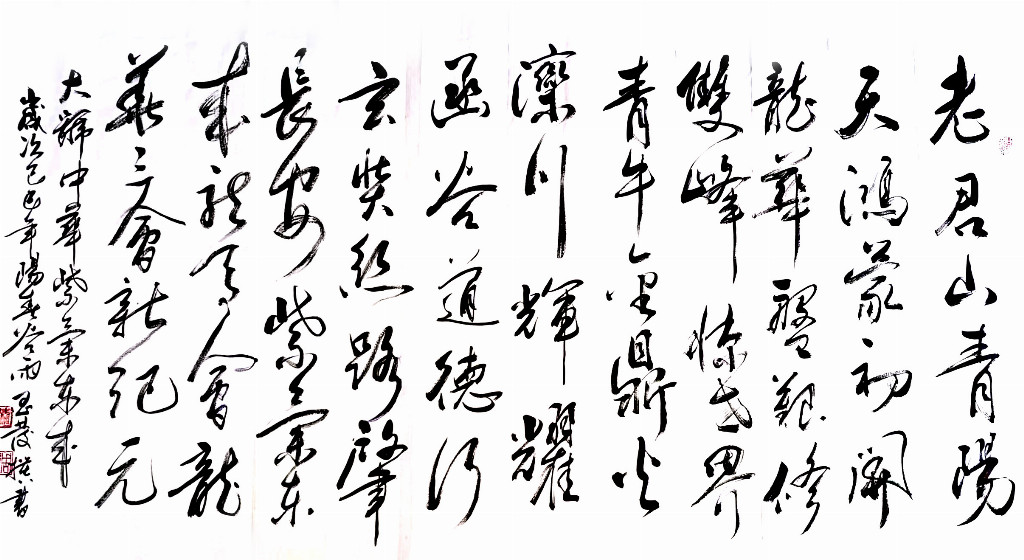 老君山青陽
天鴻蒙初開
龍華盤艱修
雙峰惊世界
青牛兜鼎火
灤川輝耀
函谷道德行
玄奘絲路肇
長安紫氣東
來龍天會龍
華三會新紀元
大歸中華紫氣東來
歲次己巳年陽春谷雨
書